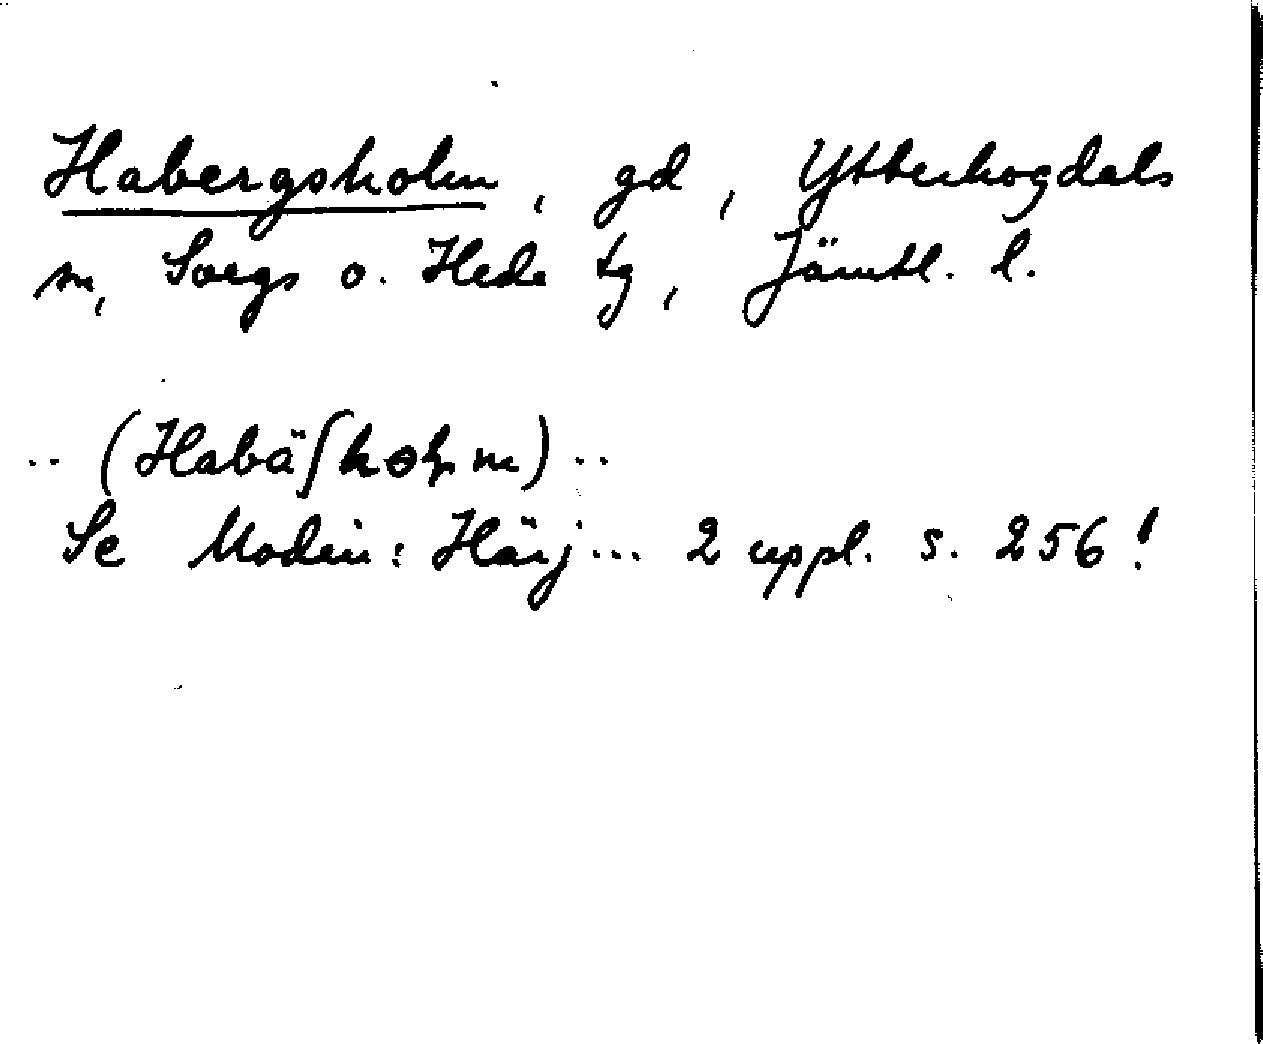 Habergsholm, gd, Ytterhogdals
sn, Svegs o. Hede tg, Jämtl. l.
.. (Habäʃhoḷm) ..
Se Modin: Härj... 2 uppl. s. 256!